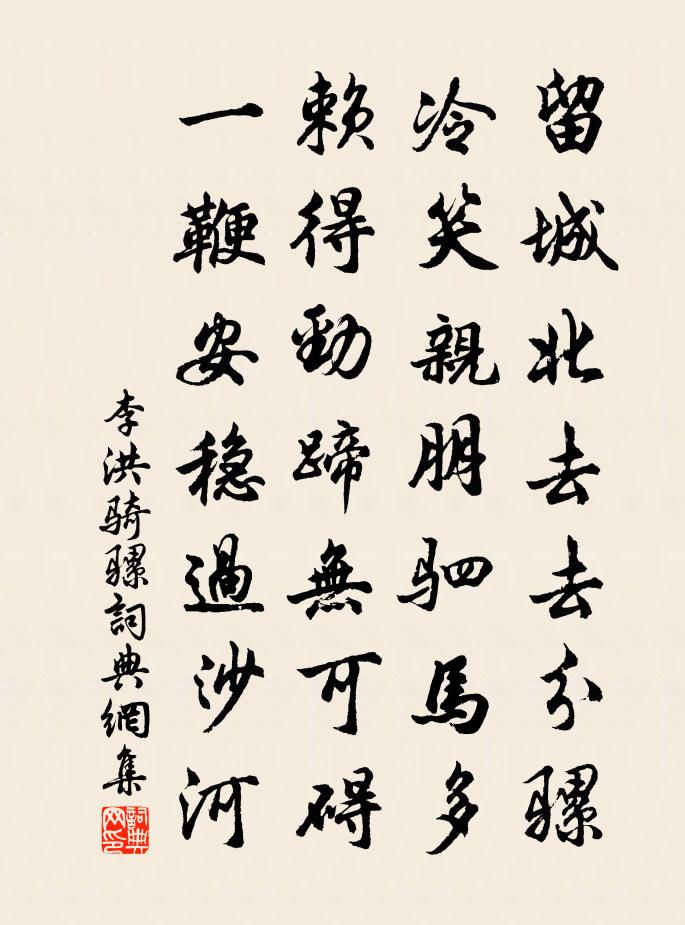 留城北去去分骡
冷笑親朋驷馬多
赖得勁蹄無可碍
一鞭安穏過沙河
李洪骑骡詞典網集
詞典网印